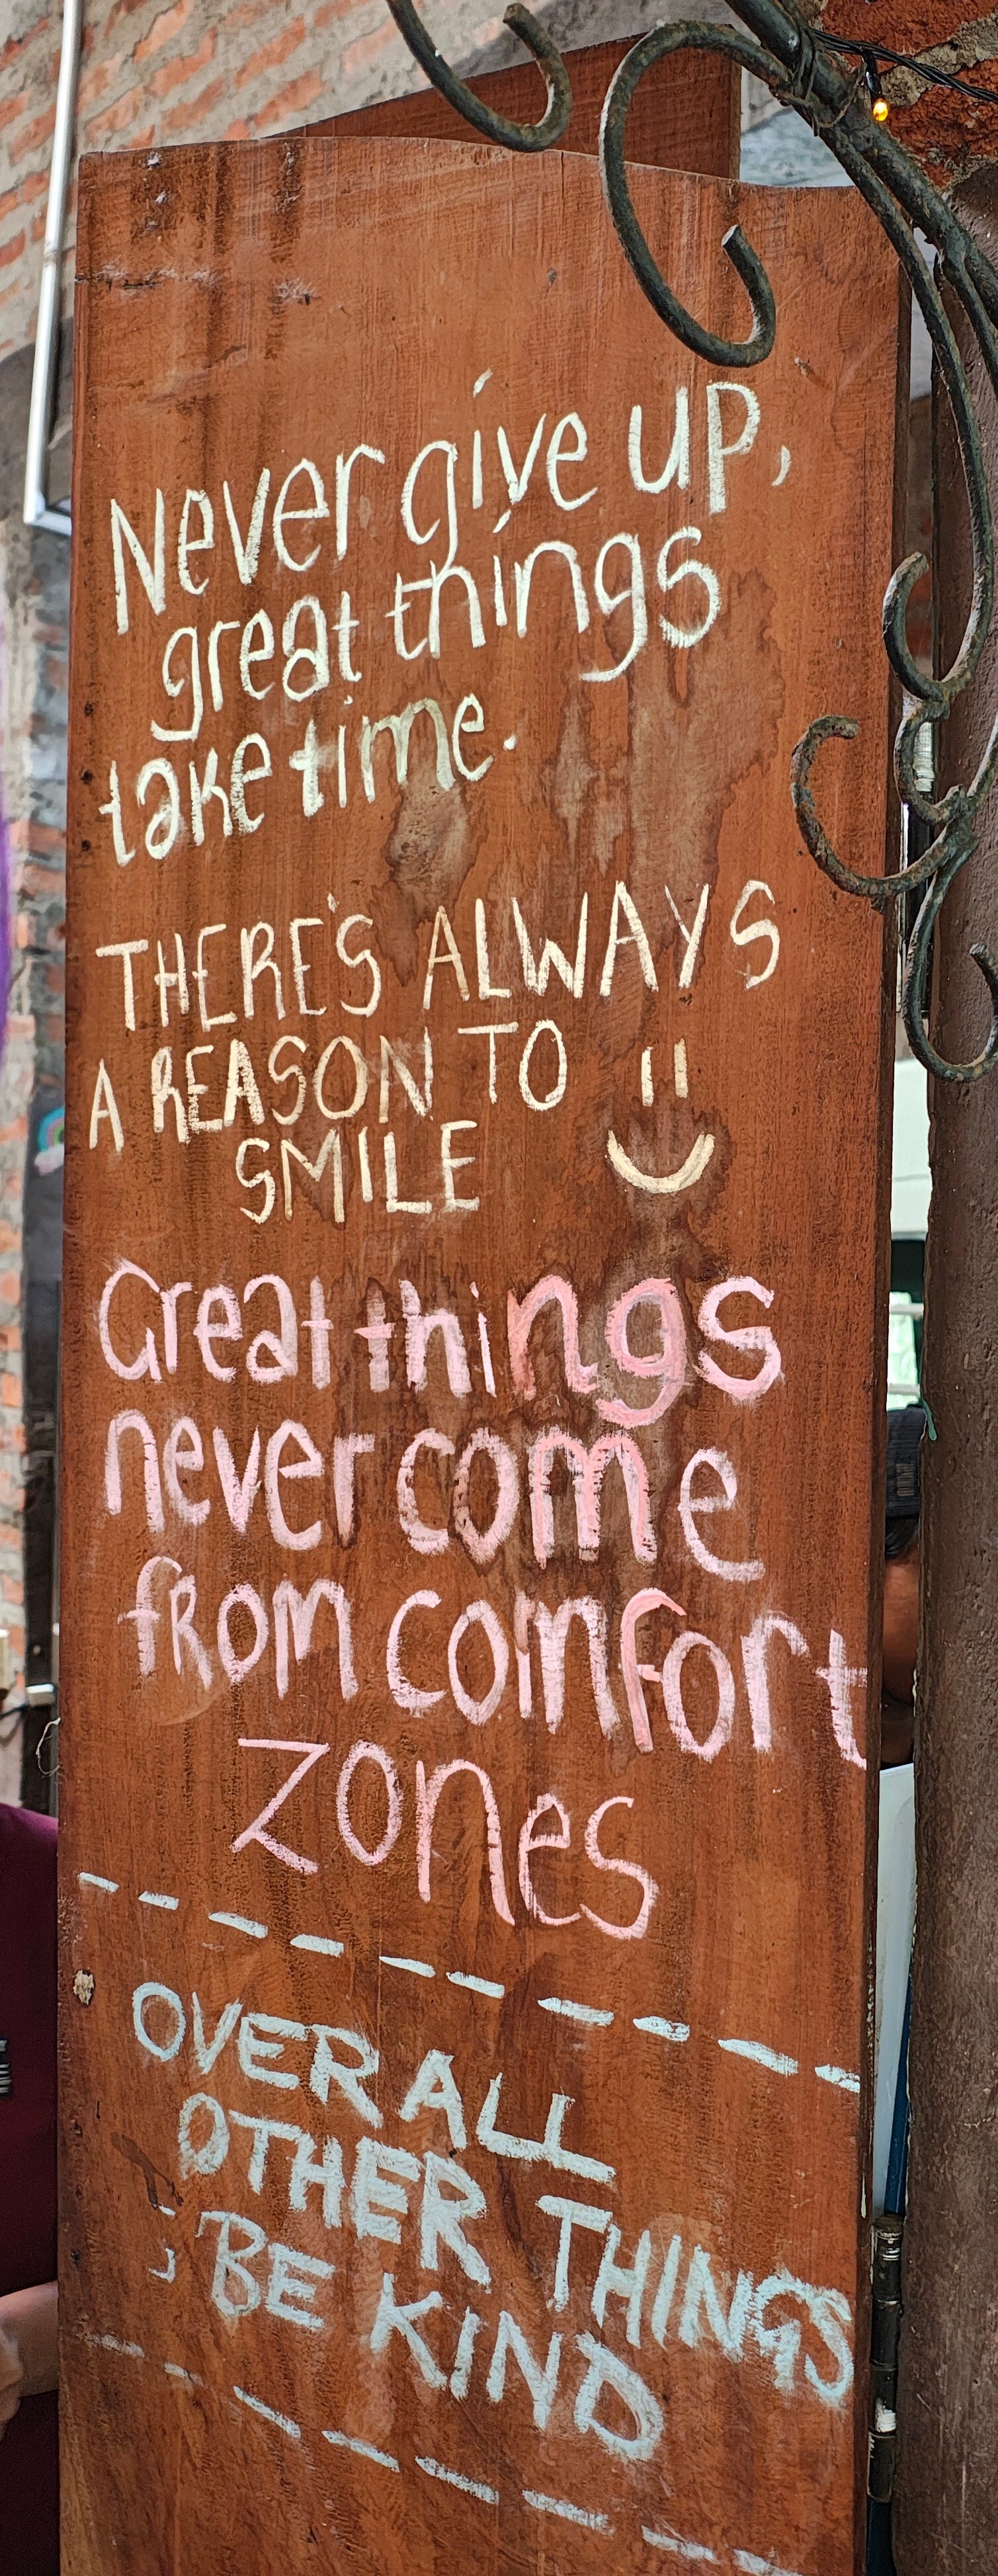 Never give up,
great things
take time.
THERE'S ALWAYS
A REASON TO
SMILE
Great things
never come
from comfort
zones
OVER ALL
OTHER THINGS
; BE KIND